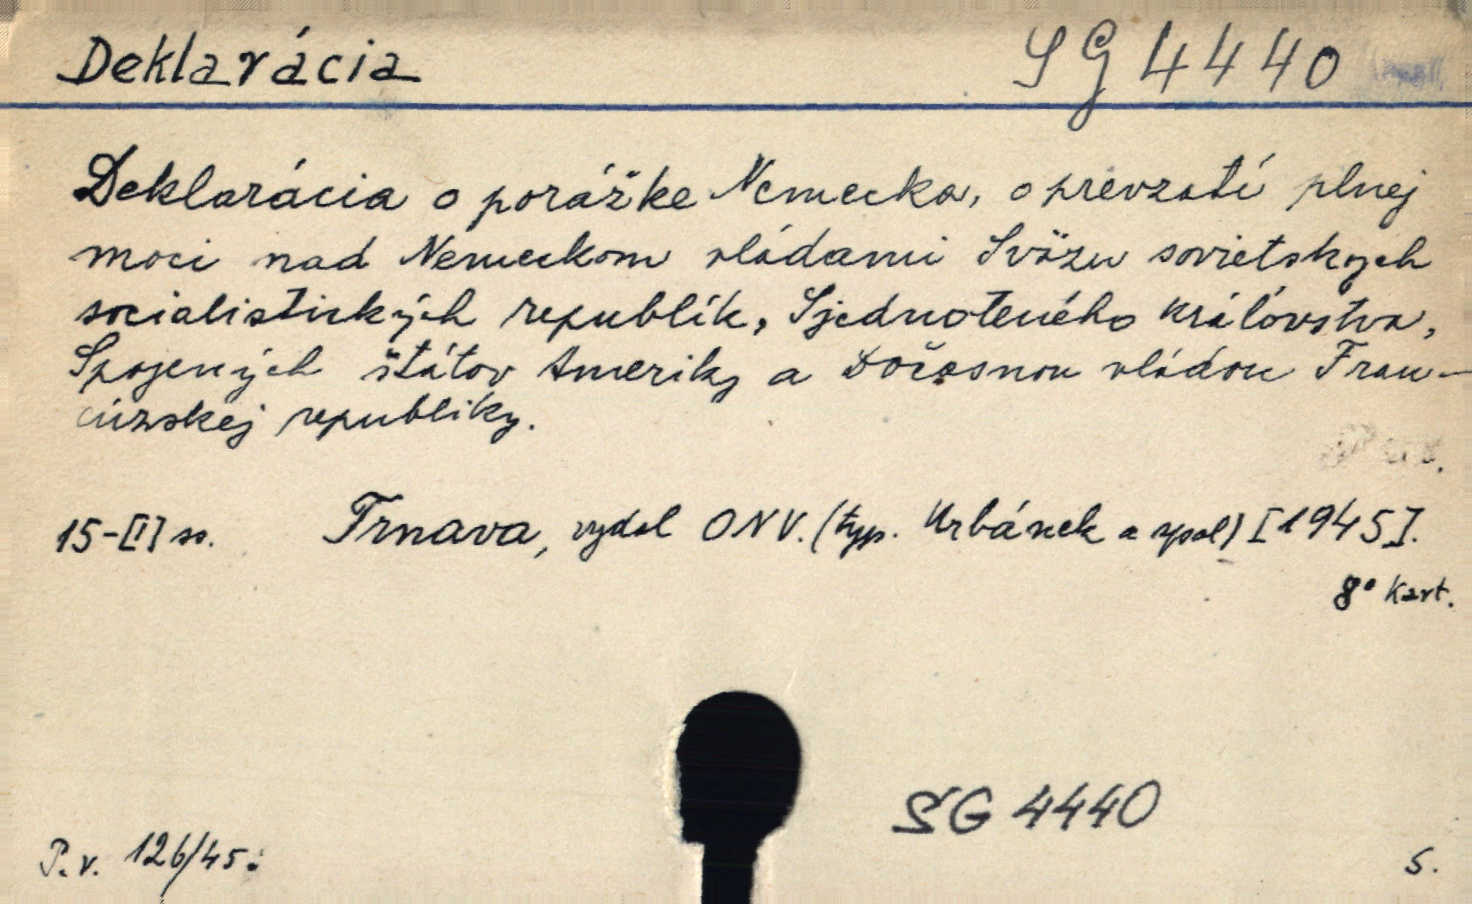 Deklarácia SG 4440
Deklarácia o porážke Nemecka, o prevzatí plnej
moci nad Nemeckom vládami Sväzu sovietskych
socialistických republík, Sjednoteného kráľovstva,
Spojených štátov Ameriky a Dočasnou vládou Fran-
cúzskej republiky.
15-[I] ss. Trnava, vydal ONV. (typ. Urbánek a spol) [1945].
8° Kart.
SG 4440
P. v. 126/45. S.